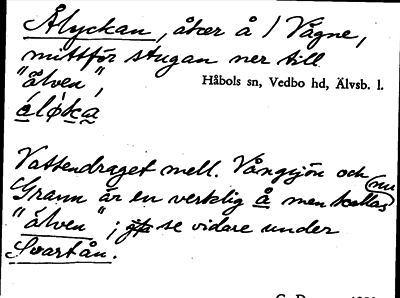 Ålyckan, åker å 1 Vågne,
mittför stugan ner till
"älven",
Håbols sn, Vedbo hd, Älvsb. l.
áløka
Vattendraget mell. Vångsjön och
Grann är en verklig å men kallas nu
"älven"; se vidare under
Svartån.